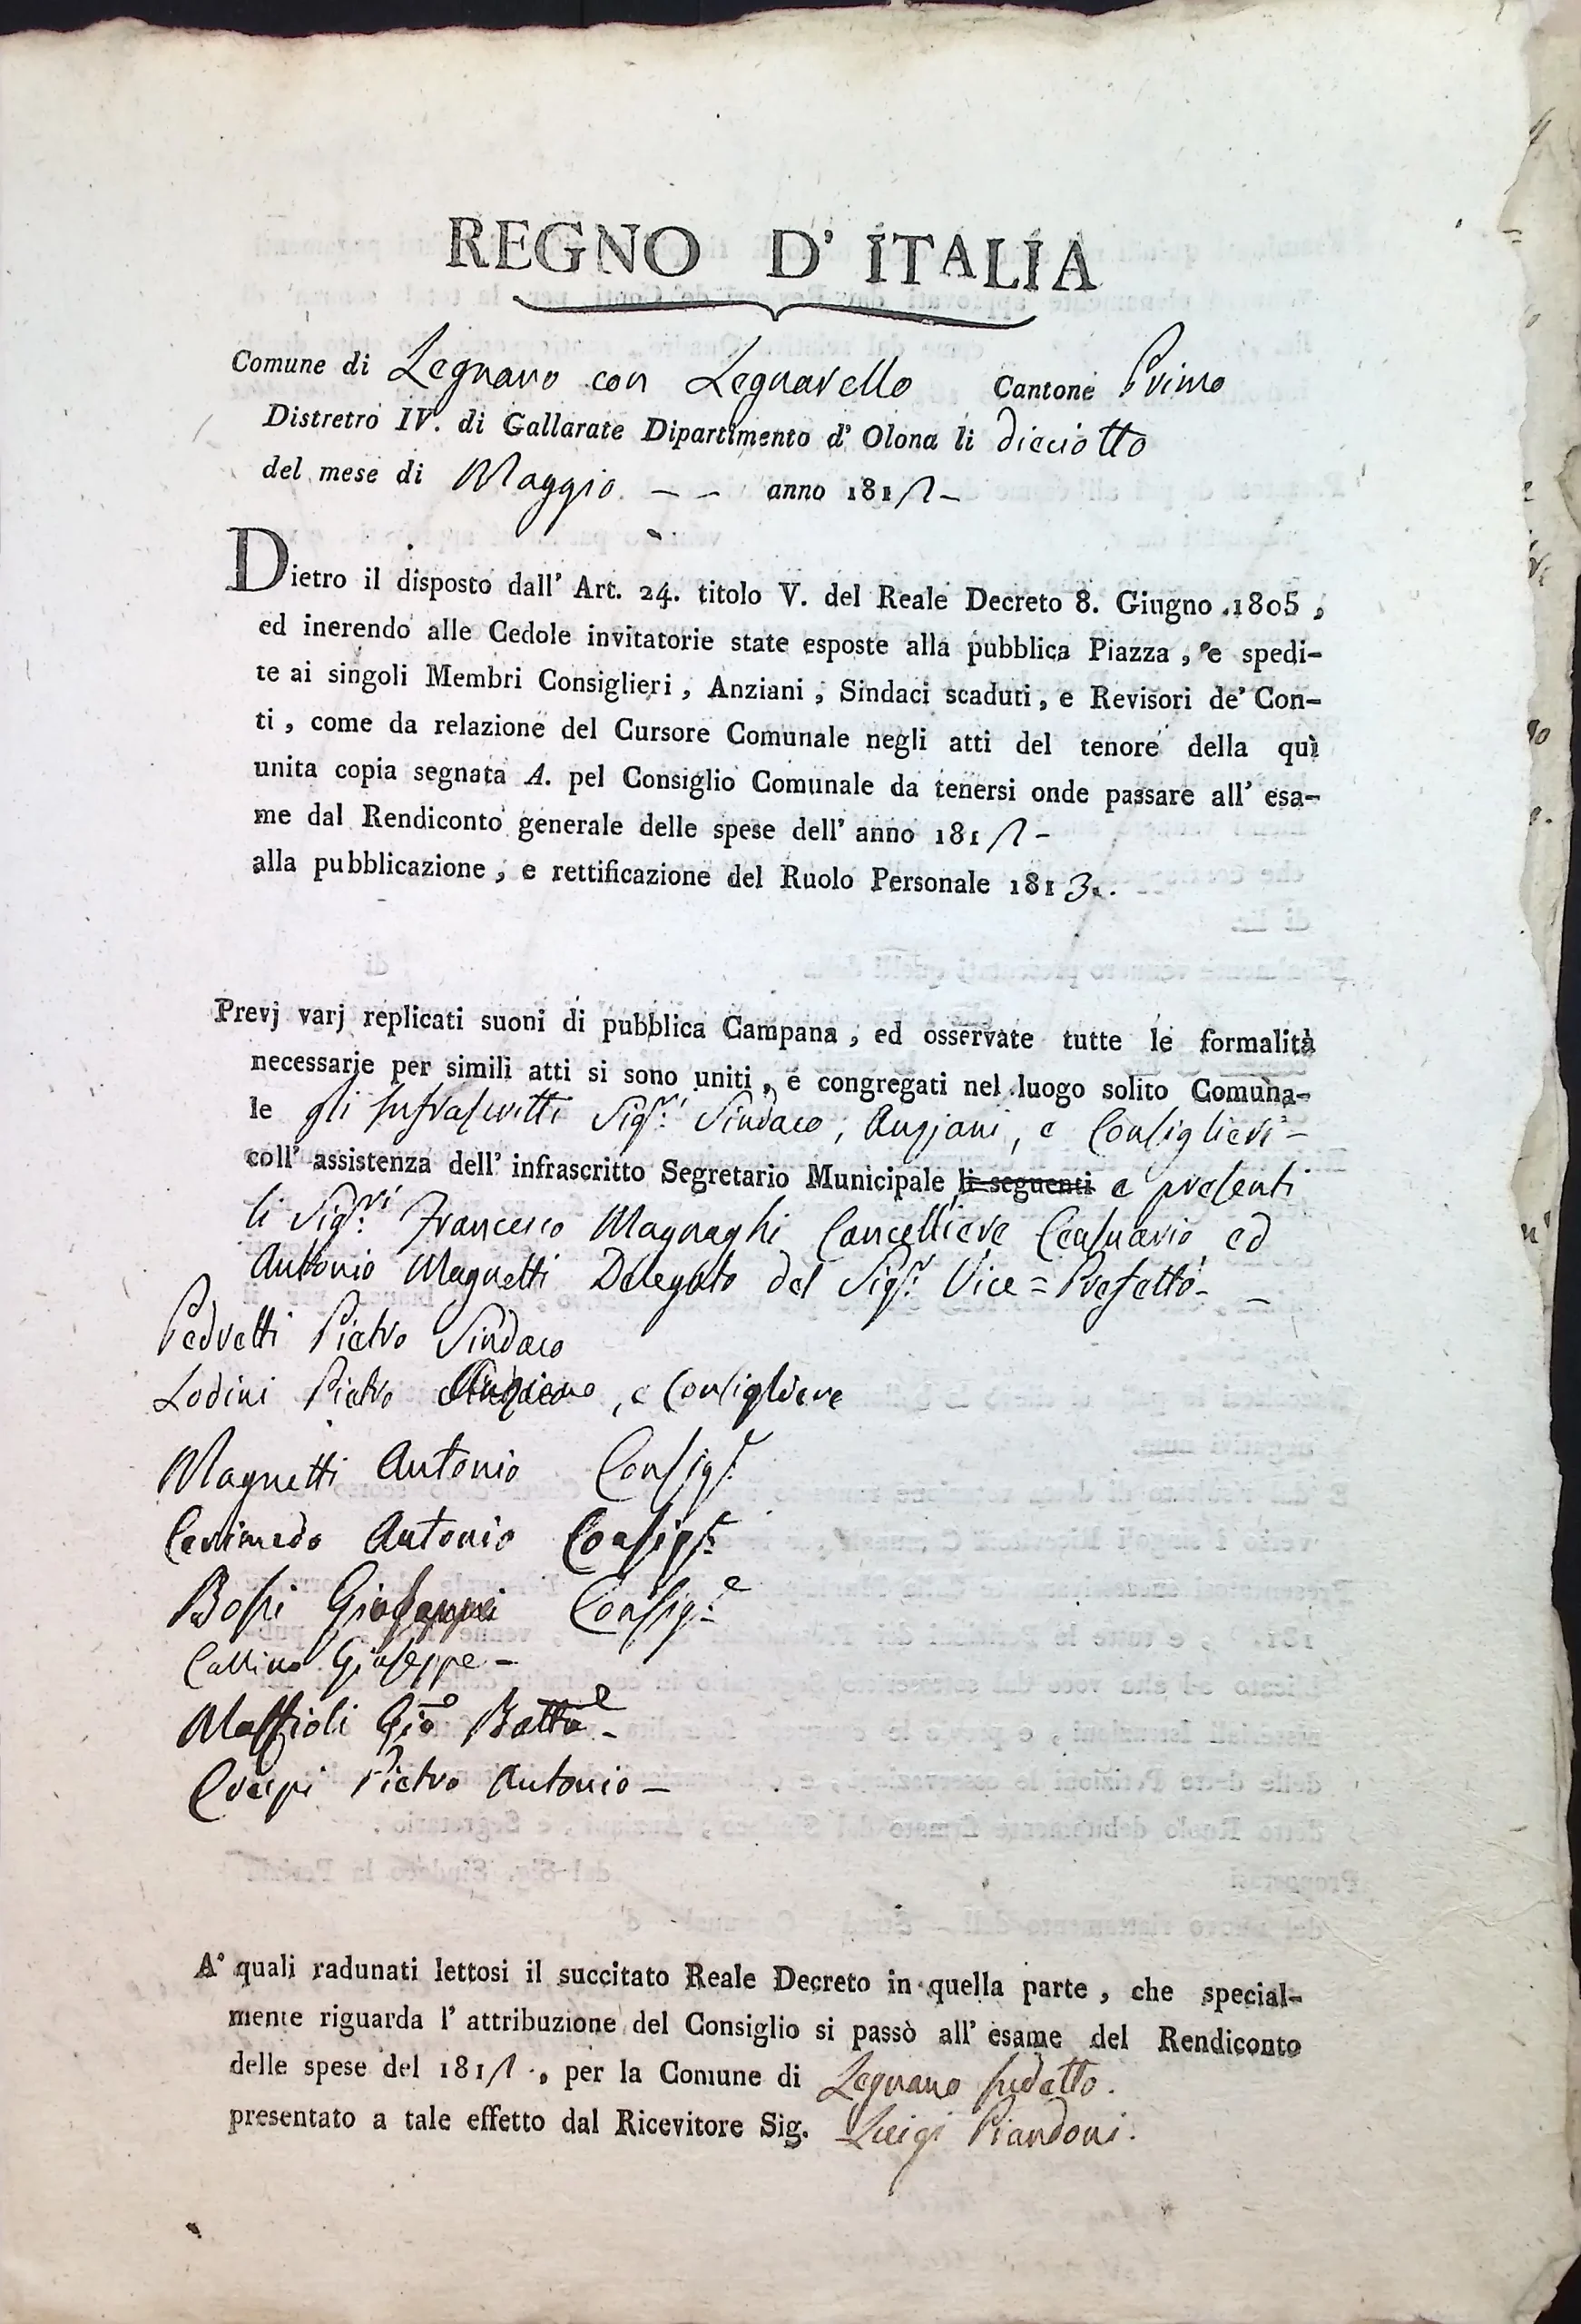 REGNO D' ITALIA
Comune di Legnano con Legnarello Cantone Primo
Distretro IV. di Gallarate Dipartimento d' Olona li dieciotto
del mese di Maggio. – – anno 181
Dietro il disposto dall' Art. 24. titolo V. del Reale Decreto 8. Giugno 1805,
ed inerendo alle Cedole invitatorie state esposte alla pubblica Piazza, e spedi-
te ai singoli Membri Consiglieri, Anziani, Sindaci scaduti, e Revisori de' Con-
ti, come da relazione del Cursore Comunale negli atti del tenore della quì
unita copia segnata A. pel Consiglio Comunale da tenersi onde passare all' esa-
me dal Rendiconto generale delle spese dell' anno 181
alla pubblicazione, e rettificazione del Ruolo Personale 1813.
Prevj varj replicati suoni di pubblica Campana, ed osservate tutte le formalità
necessarie per simili atti si sono uniti, e congregati nel luogo solito Comuna-
le gli infrascritti Sig.ri Sindaco, Anziani, e Consiglieri –
coll' assistenza dell' infrascritto Segretario Municipale li seguenti e presenti
li Sig.ri Francesco Magnaghi Cancelliere Censuario ed
Antonio Magnetti Delegato del Sig.r Vice=Prefetto –
Pedretti Pietro Sindaco
Lodini Pietro Anziano, e Consigliere
Magnetti Antonio Consig.r
Cerimedo Antonio Consig.r
Bossi Consig.e
Giuseppe –
Maffioli Gio Batta –
Crespi Pietro Antonio –
A' quali radunati lettosi il succitato Reale Decreto in quella parte, che special-
mente riguarda l' attribuzione del Consiglio si passò all' esame del Rendiconto
delle spese del 181 , per la Comune di Legnano sudetto.
presentato a tale effetto dal Ricevitore Sig. Luigi Piandoni.